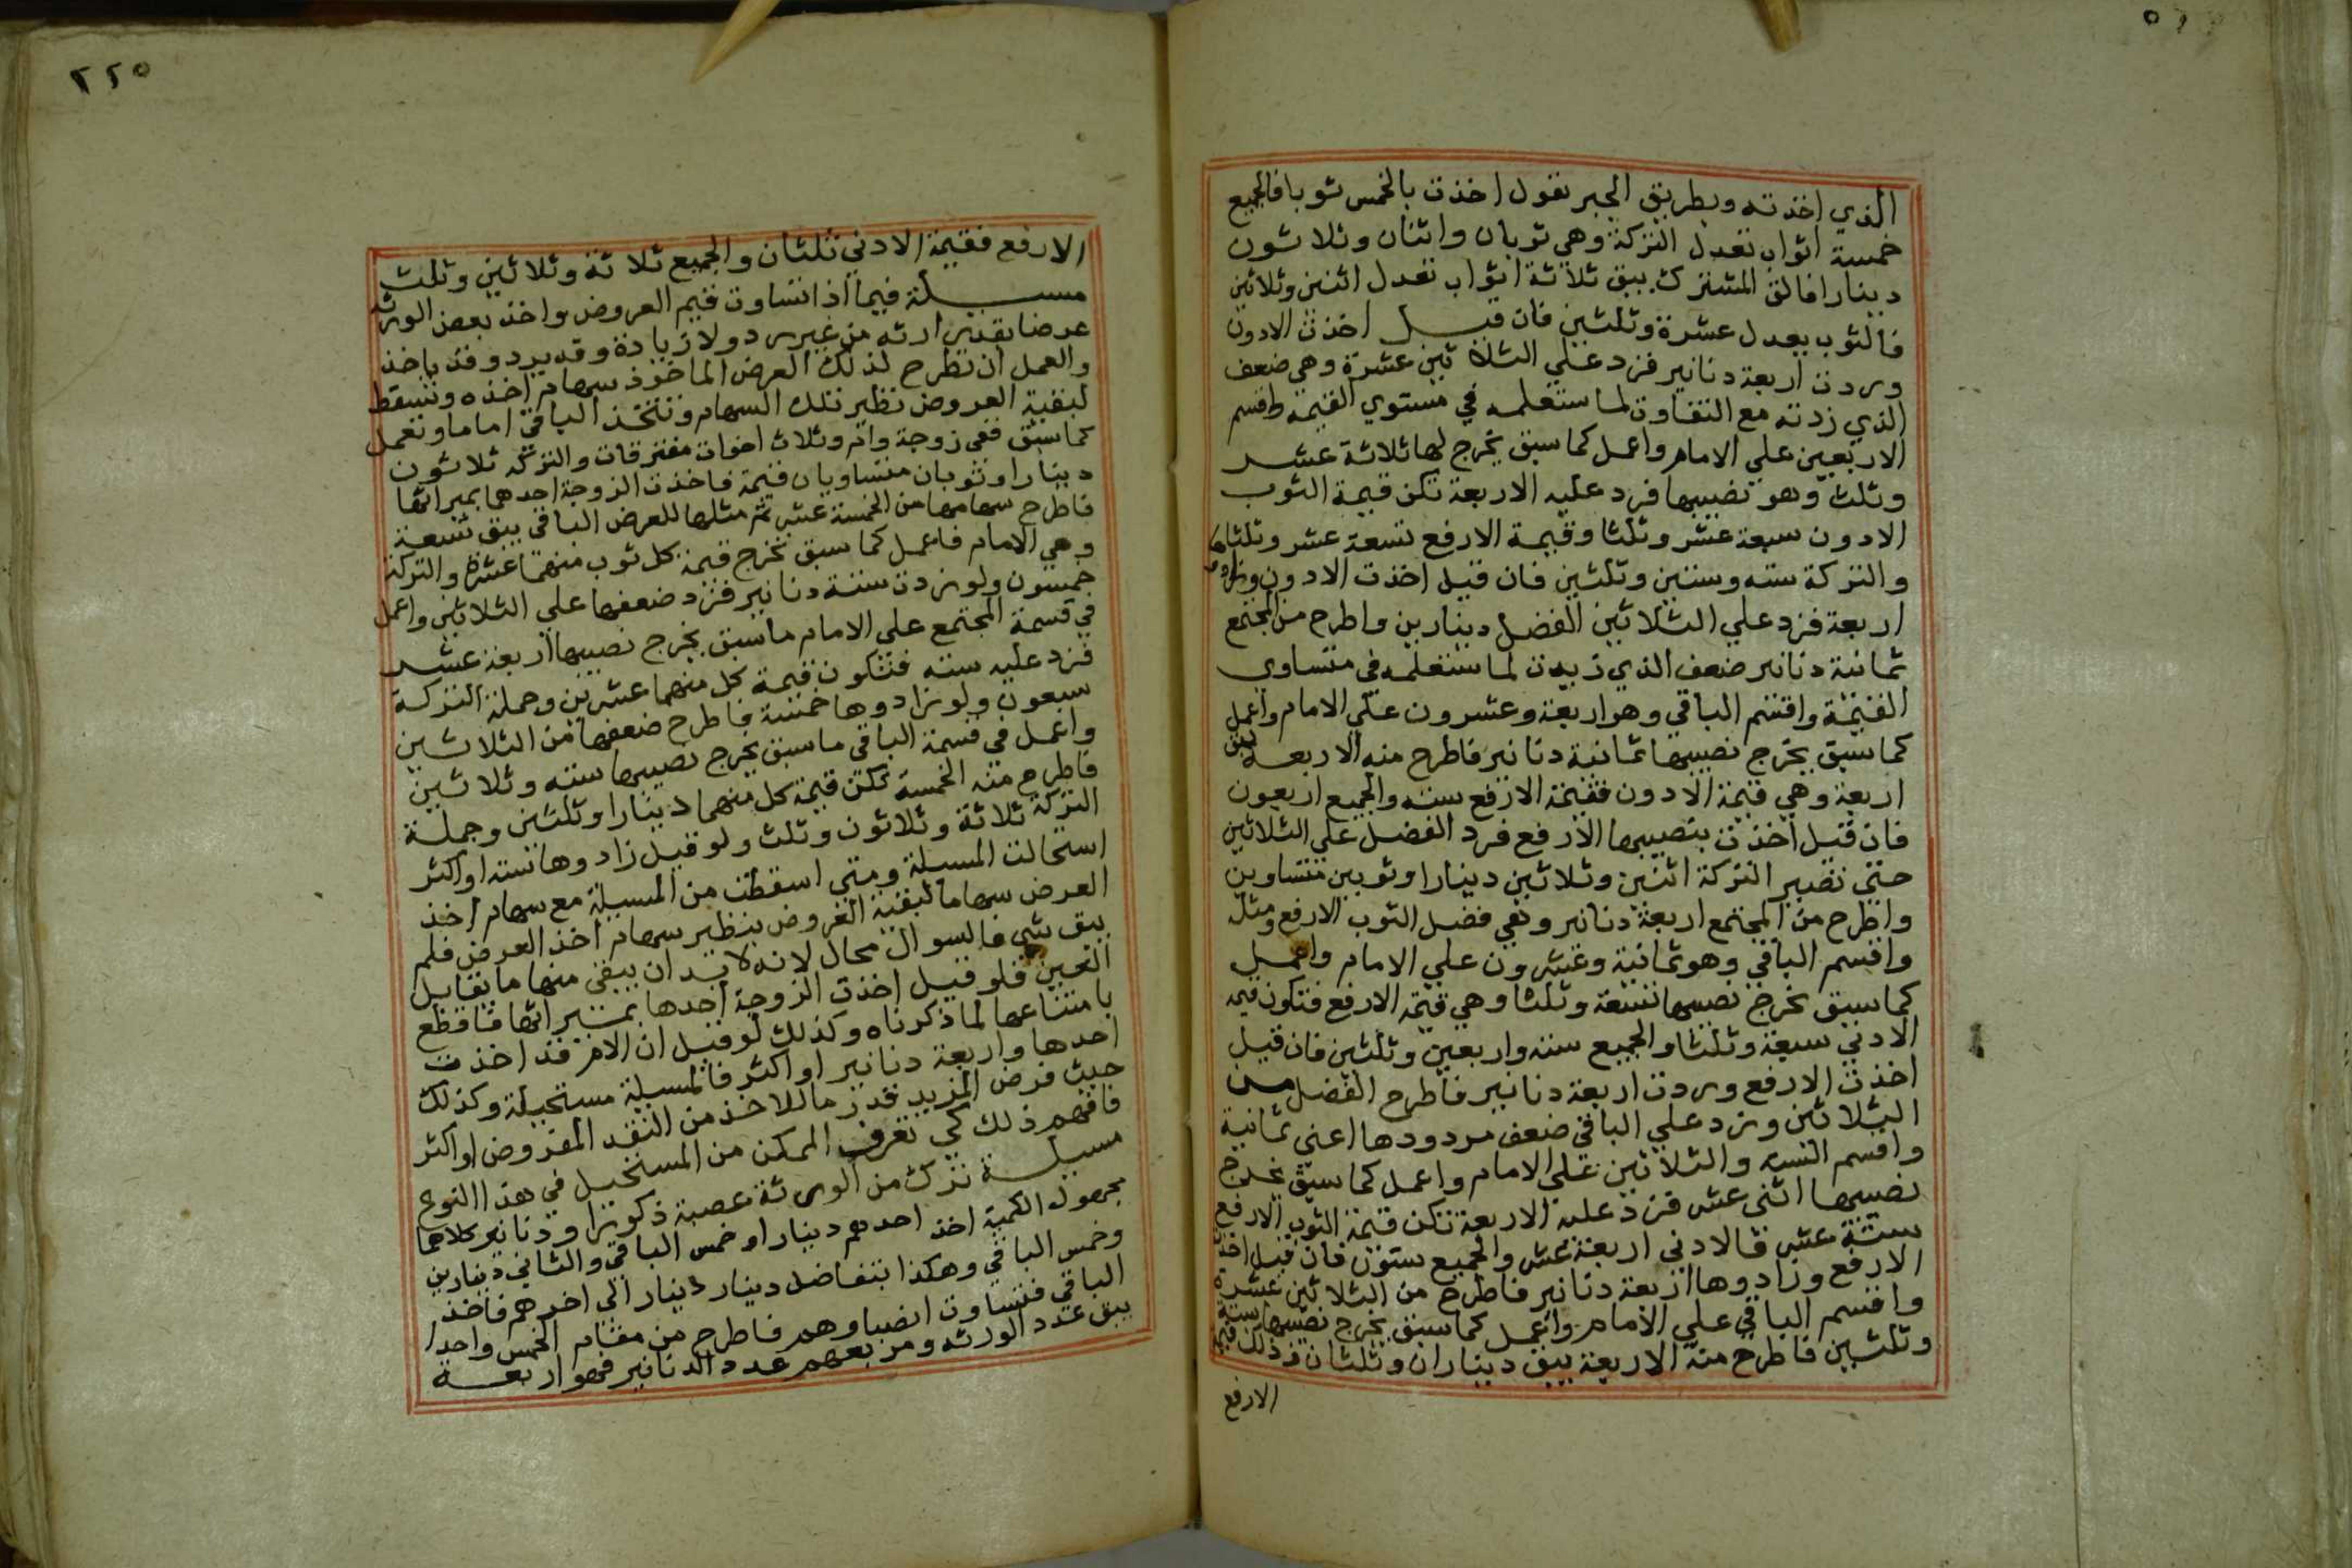 الذي اخذته وبطريق الجبر تقول اخذت بالخمس ثوبا فالجميع
خمسة اثواب تعدل التركة وهي ثوبان واثنان وثلاثون
دينارا فالق المشترك يبق ثلاثة اثواب تعدل اثنين وثلاثين
فالثوب يعدل عشرة وثلثين فان قيل اخذت الادون
وردت اربعة دنانير فزد علي الثلاثين عشرة وهي ضعف
الذي زدته مع التفاوت لما ستعلمه في مستوي القيمة واقسم
الاربعين علي الامام واعمل كما سبق يخرج لها ثلاثة عشر
وثلث وهو نصيبها فزد عليه الاربعة تكن قيمة الثوب
الادون سبعة عشر وثلثا وقيمة الارفع تسعة عشر وثلثا
والتركة سته وستين وثلثين فان قيل اخذت الادون وزادوها
اربعة فزد علي الثلاثين الفضل دينارين واطرح من المجتمع
ثمانية دنانير ضعف الذي زيدت لما ستعلمه في متساوي
القيمة واقسم الباقي وهو اربعة وعشرون علي الامام واعمل
كما سبق يخرج نصيبها ثمانية دنانير فاطرح منه الاربعة يبق
اربعة وهي قيمة الادون فقيمة الارفع سته والجميع اربعون
فان قيل اخذت بنصيبها الارفع فزد الفضل علي الثلاثين
حتي تصير التركة اثنين وثلاثين دينارا وثوبين متساويين
واطرح من المجتمع اربعة دنانير وهي فضل الثوب الارفع ومثله
واقسم الباقي وهو ثمانية وعشرون علي الامام واعمل
كما سبق يخرج نصيبها تسعة وثلثا وهي قيمة الارفع فتكون قيمة
الادني سبعة وثلثا والجميع سته واربعين وثلثين فان قيل
اخذت الارفع وردت اربعة دنانير فاطرح الفضل من
الثلاثين وزد علي الباقي ضعف مردودها اعني ثمانية
واقسم السته والثلاثين علي الامام واعمل كما سبق يخرج
نصيبها اثني عشر فزد عليه الاربعة تكن قيمة الثوب الارفع
ستة عشر فالادني اربعة عشر والجميع ستون فان قيل اخذت
الارفع وزادوها اربعة دنانير فاطرح من الثلاثين عشرة
واقسم الباقي علي الامام واعمل كما سبق يخرج نصيبها ستة
وثلثين فاطرح منه الاربعة يبق ديناران وثلثان فذلك قيمة
الارفع
٢٢٥
الارفع فقيمة الادني ثلثان والجميع ثلاثة وثلاثين وثلث
مسيلة فيما اذا تساوت قيم العروض واخذ بعض الورثه
عرضا بقدر ارثه من غير رد ولا زيادة وقد يرد وقد ياخذ
والعمل ان تطرح لذلك العرض الماخوذ سهام اخذه وتسقط
لبقية العروض نظير تلك السهام وتتخذ الباقي اماما وتعمل
كما سبق ففي زوجة وام وثلاث اخوات مفترقات والتركه ثلاثون
دينارا وثوبان متساويان قيمة فاخذت الزوجة احدهما بميراثها
فاطرح سهامها من الخمسة عشر ثم مثلها للعرض الباقي يبق تسعة
وهي الامام فاعمل كما سبق تخرج قيمة كل ثوب منهما عشرة والتركة
خمسون ولو زدت ستة دنانير فزد ضعفها علي الثلاثين واعمل
في قسمة المجتمع علي الامام ما سبق يخرج نصيبها اربعة عشر
فزد عليه سته فتكون قيمة كل منهما عشرين وجملة التركة
سبعون ولو زادوها خمسة فاطرح ضعفها من الثلاثين
واعمل في قسمة الباقي ما سبق يخرج نصيبها سته وثلاثين
فاطرح منه الخمسة تكن قيمة كل منهما دينارا وثلثين وجملة
التركة ثلاثة وثلاثون وثلث ولو قيل زادوها سته او اكثر
استحالت المسيلة ومتي اسقطت من المسيلة مع سهام اخذ
العرض سهاما لبقية العروض بنظير سهام اخذ العرض فلم
يبق شي فالسوال محال لانه لا بد ان يبقي منها ما يقابل
العين فلو قيل اخذت الزوجة احدها بميراثها فاقطع
بامتناعها لما ذكرناه وكذلك لو قيل ان الام قد اخذت
احدها واربعة دنانير او اكثر فالمسيلة مستحيلة وكذلك
حيث فرض المزيد قدر ما للاخذ من النقد المفروض او اكثر
فافهم ذلك كي تعرف الممكن من المستحيل في هذا النوع
مسيلة ترك من الورثة عصبة ذكورا ودنانير كلاهما
مجهول الكمية اخذ احدهم دينارا وخمس الباقي والثاني دينارين
وخمس الباقي وهكذا بتفاضل دينار دينار الي اخرهم فاخذ
الباقي فتساوت انصباوهم فاطرح من مقام الخمس واحدا
يبق عدد الورثه ومربعهم عدد الدنانير فهو اربعة